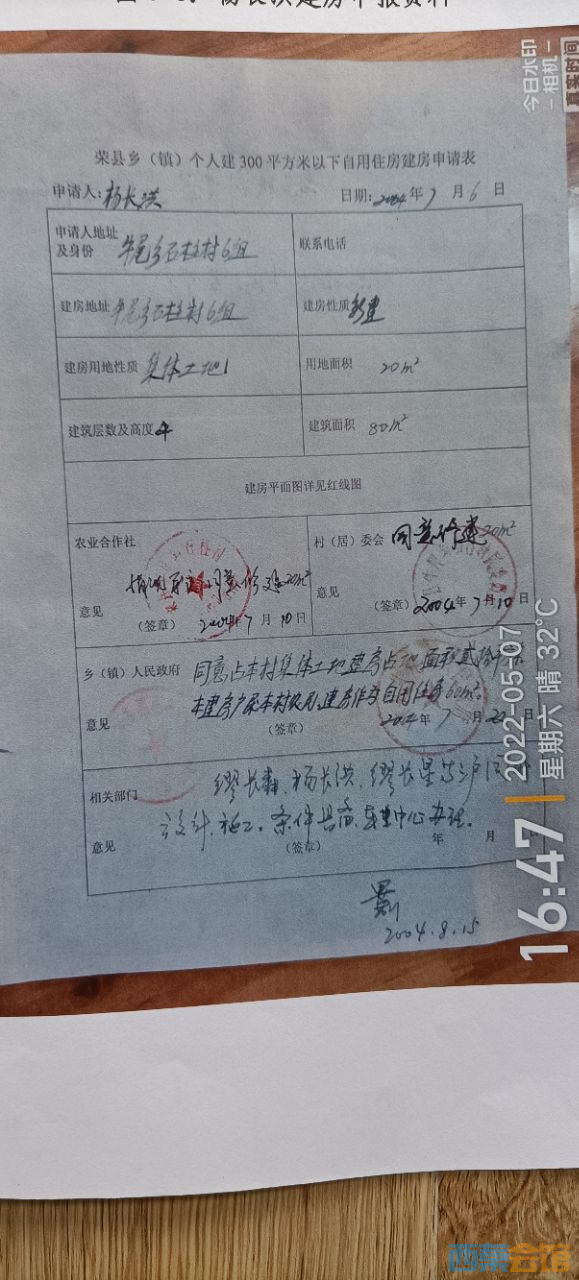 杨长洪建房申报资料
荣县乡（镇）个人建300平方米以下自用住房建房申请表
申请人：杨长洪 日期：2004年7月6日
申请人地址及身份 牛尾乡石柱村6组 联系电话
建房地址 牛尾乡石柱村6组 建房性质 新建
建房用地性质 集体土地 用地面积 20m²
建筑层数及高度 4 建筑面积 80m²
建房平面图详见红线图
农业合作社 村（居）委会 同意修建20m²
同意修建20m²
意见 意见
（签章） 2004年7月10日 （签章） 2004年7月10日
乡（镇）人民政府 同意占本村集体土地建房占地面积贰拾
本建房户系本村农户，建房作为自用住房60m²。
意见 （签章） 2004年7月22日
相关部门 缪长森、杨长洪、缪长星
设计、施工。条件具备，中心办理。
意见 （签章） 年 月
2004.8.15
今日水印
-相机-
真实时间
16:47
2022-05-07
星期六 晴 32℃
西荣会馆